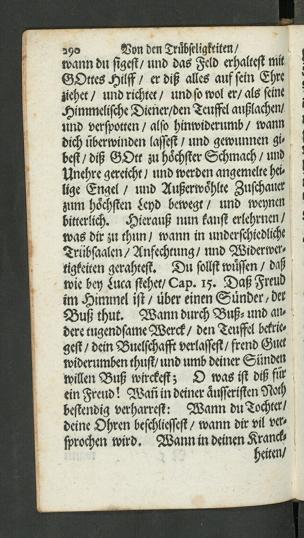 290 Von den Trübseligkeiten/
wann du sigest/ und das Feld erhaltest mit
GOttes Hilff/ er diß alles auf sein Ehre
ziehet/ und richtet/ und so wol er/ als seine
Himmelische Diener/den Teuffel außlachen/
und verspotten/ also hinwiderumb/ wann
dich überwinden lassest/ und gewunnen gi-
best/ diß GOtt zu höchster Schmach/ und
Unehre gereicht/ und werden angemelte hei-
lige Engel/ und Außerwöhlte Zuschauer
zum höchsten Leyd bewegt/ und weynen
bitterlich. Hierauß nun kanst erlehrnen/
was dir zu thun/ wann in underschiedliche
Trübsaalen/ Anfechtung/ und Widerwer-
tigkeiten gerahtest. Du sollst wüssen/ daß
wie bey Luca stehet/ Cap. 15. Daß Freud
im Himmel ist/ über einen Sünder/ der
Buß thut. Wann durch Buß- und an-
dere tugendsame Werck/ den Teuffel bekrie-
gest/ dein Buelschafft verlassest/ frend Guet
widerumben thust/ und umb deiner Sünden
willen Buß wirckest; O was ist diß für
ein Freud! Wañ in deiner äusseristen Noth
bestendig verharrest: Wann du Tochter/
deine Ohren beschliessest/ wann dir vil ver-
sprochen wird. Wann in deinen Kranck-
heiten/